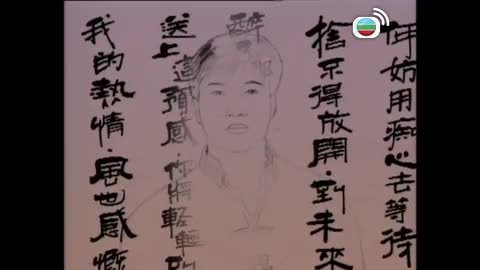 何妨用痴心去等待
捨不得放開·到未來
醉
送上這預感·你將輕
我的熱情·風也感慨